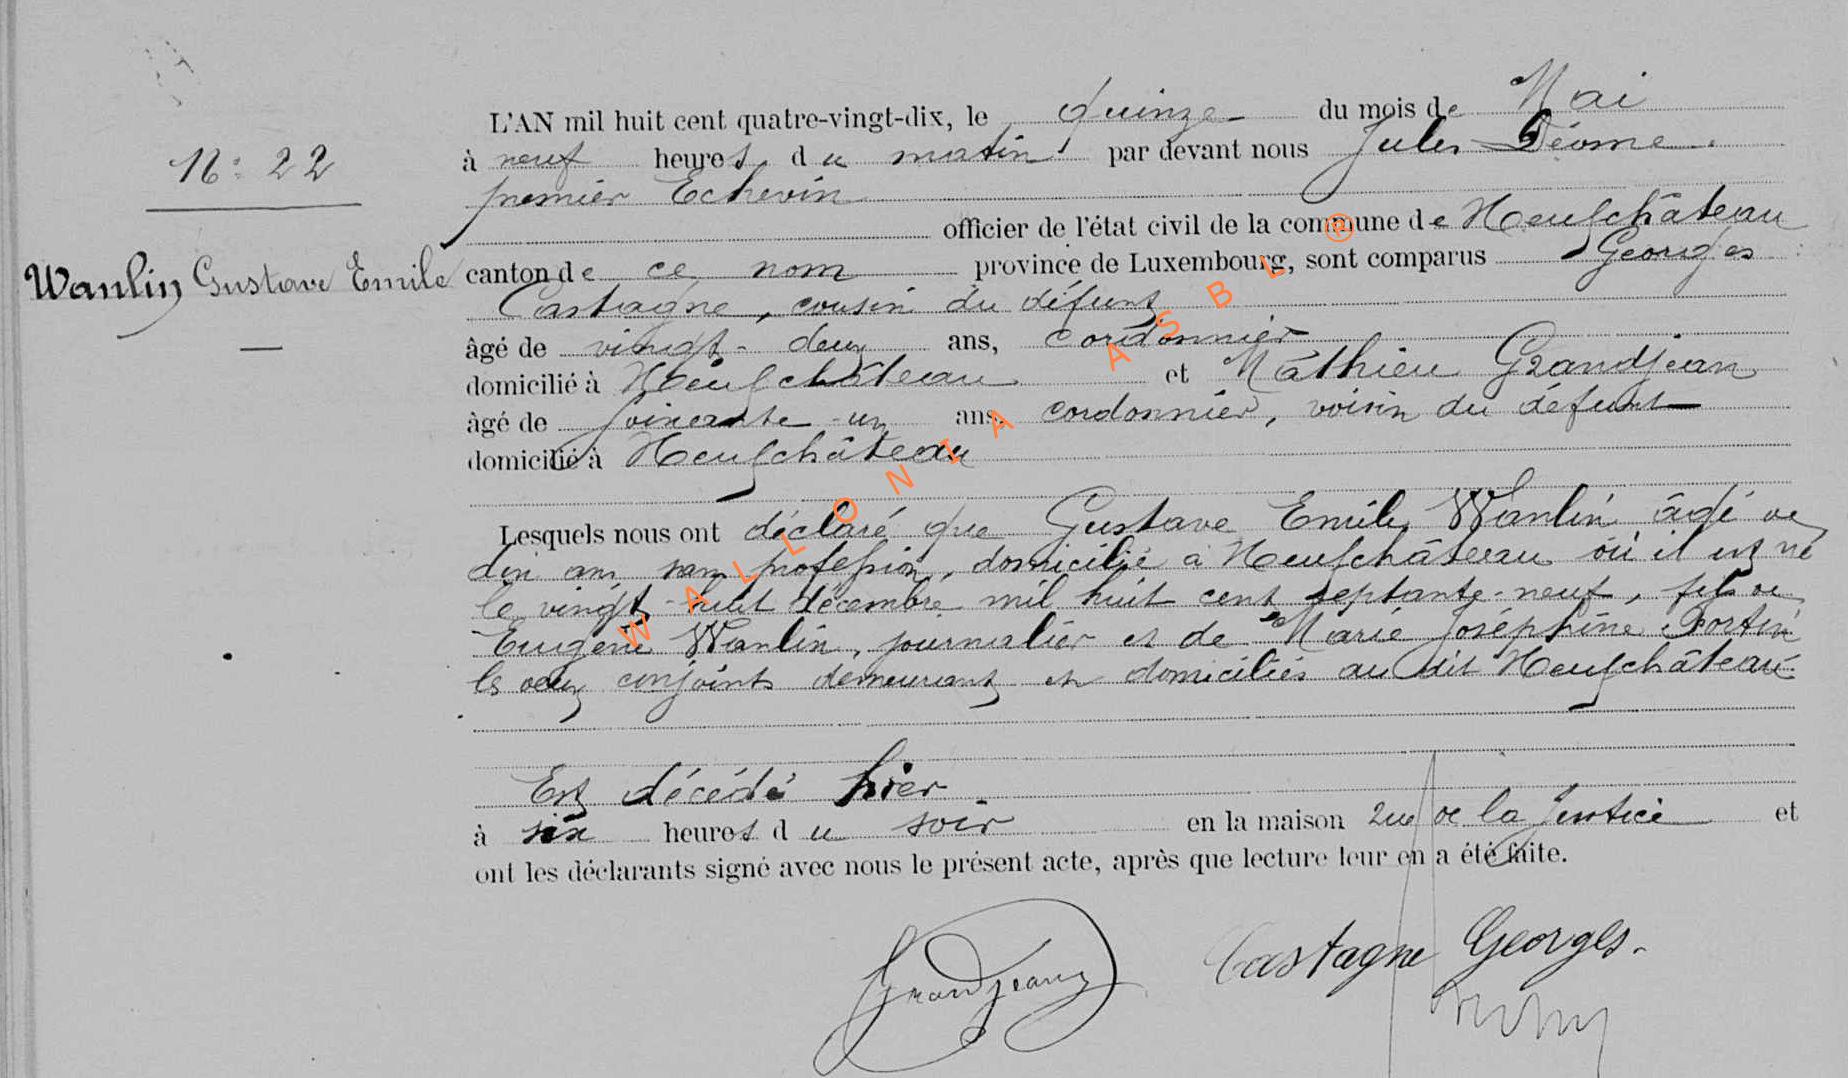 L'AN mil huit cent quatre-vingt-dix, le quinze du mois de Mai
N: 22
à neuf heures du matin par devant nous Jules Déome
premier Echevin
officier de l'état civil de la commune de Neufchâteau
Wanlin Gustave Emile
canton de ce nom province de Luxembourg, sont comparus Georges
Castagne, cousin du défunt
âgé de vingt-deux ans, cordonnier
domicilié à Neufchâteau et Mathieu Grandjean
âgé de soixante-un ans, cordonnier, voisin du défunt
domicilié à Neufchâteau
Lesquels nous ont déclaré que Gustave Emile Wanlin âgé de
dix ans sans profession, domicilié à Neufchâteau où il est né
le vingt-huit décembre mil huit cent septante-neuf, fils de
Eugène Wanlin, journalier et de Marie Joséphine Fortin
les deux conjoints demeurant et domiciliés au dit Neufchâteau
Est décédé hier
à six heures du soir en la maison rue de la Justice et
ont les déclarants signé avec nous le présent acte, après que lecture leur en a été faite.
Grandjean
Castagne Georges.
WALLONIA ASBL ®